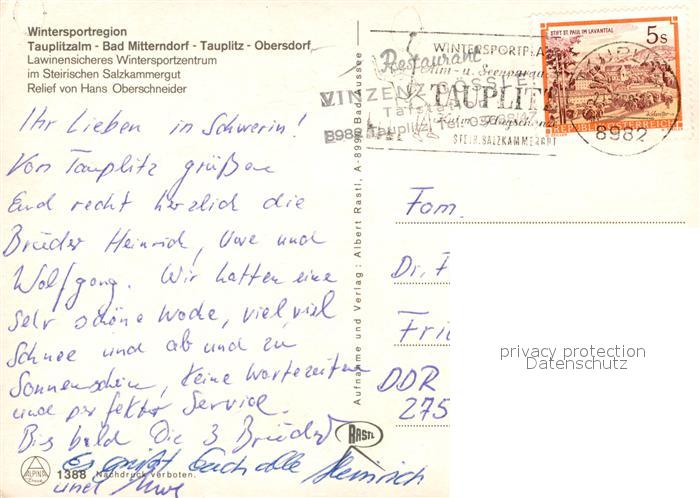 Wintersportregion
Tauplitzalm - Bad Mitterndorf - Tauplitz - Obersdorf
Lawinensicheres Wintersportzentrum
im Steirischen Salzkammergut
Relief von Hans Oberschneider
Ihr Lieben in Schwerin!
Von Tauplitz grüßen
Euch recht herzlich die
Brüder Heinrich, Uwe und
Wolfgang. Wir hatten eine
sehr schöne Woche, viel, viel
Schnee und ab und zu
Sonnenschein, keine Wartezeiten
und perfekter Service.
Bis bald Die 3 Brüder
Es grüßt Euch alle Heinrich
und Uwe
1388 Nachdruck verboten.
ALPINA
Druck
Aufnahme und Verlag: Albert Rastl, A-8990 Bad Aussee
RASTL
WINTERSPORTPLA
Restaurant
VINZENZ
TAUPLITZ
Tauplitz, Tel.
STEIR. SALZKAMMERGUT
STIFT ST. PAUL IM LAVANTTAL
5s
REPUBLIK ÖSTERREICH
8982
Fam.
Dr. F
Fri
DDR
275
privacy protection
Datenschutz